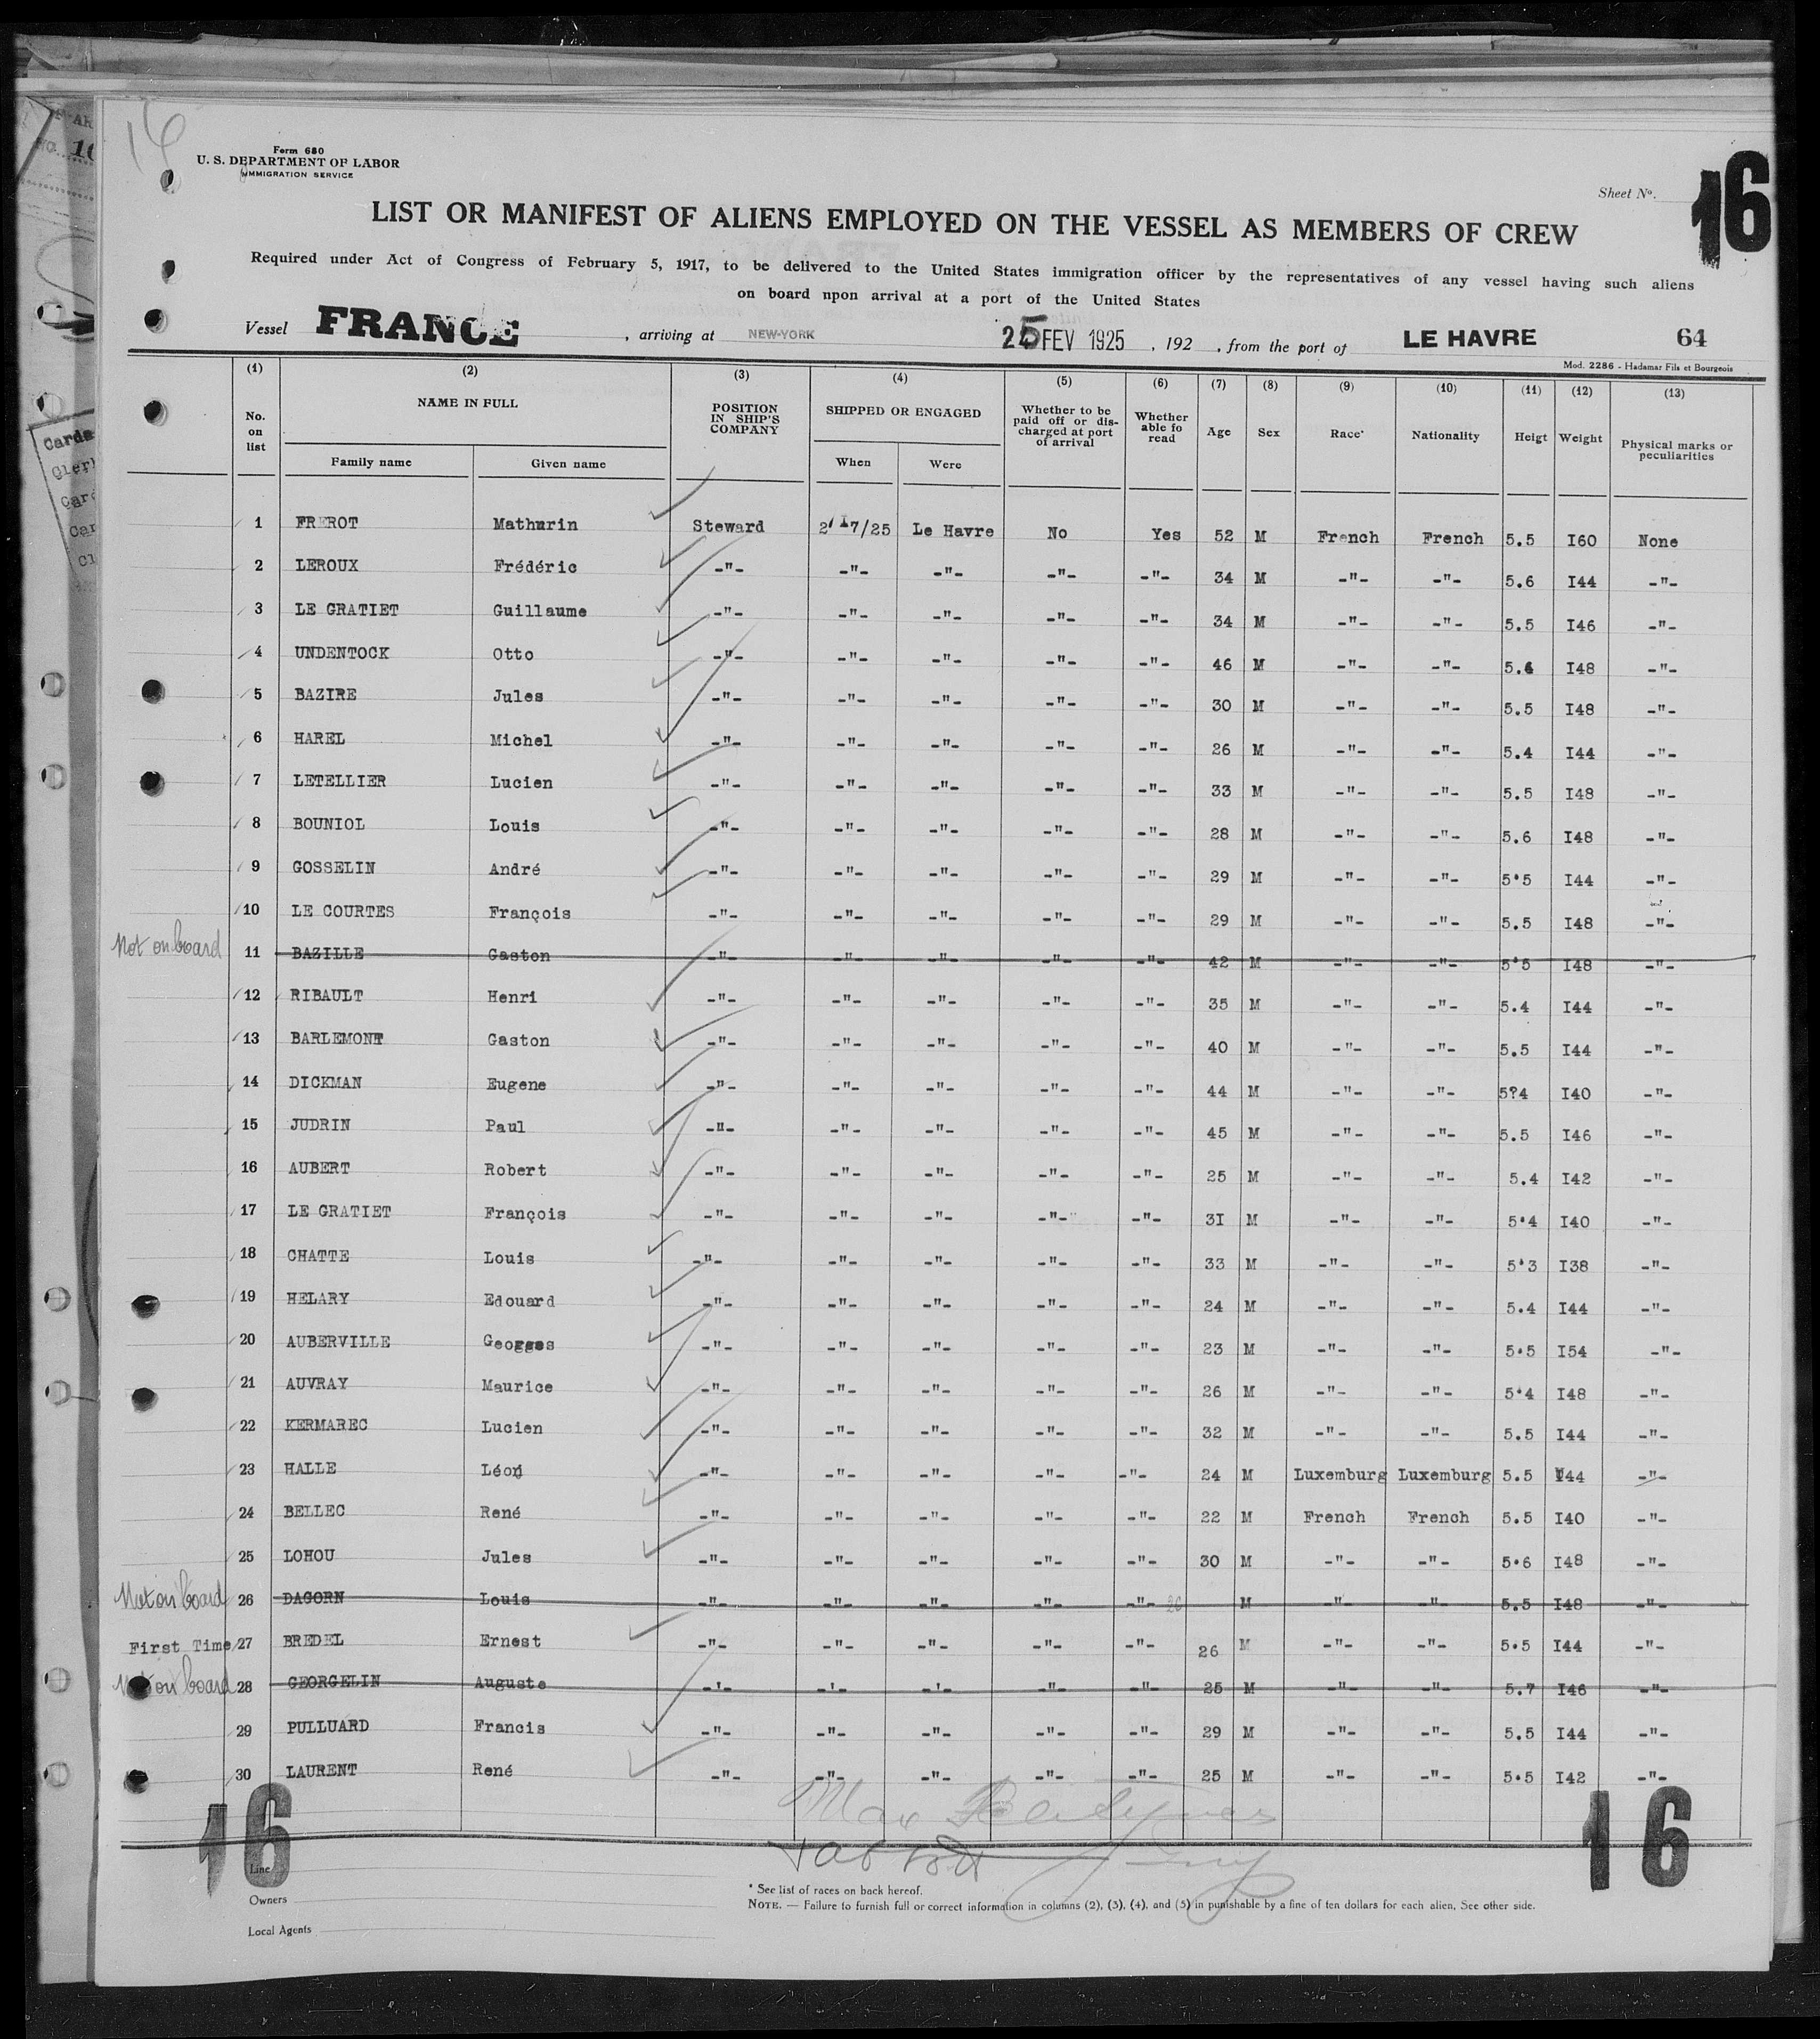 16
Form 680
U. S. DEPARTMENT OF LABOR
IMMIGRATION SERVICE
Sheet No. 16
LIST OR MANIFEST OF ALIENS EMPLOYED ON THE VESSEL AS MEMBERS OF CREW
Required under Act of Congress of February 5, 1917, to be delivered to the United States immigration officer by the representatives of any vessel having such aliens
on board npon arrival at a port of the United States
Vessel FRANCE , arriving at NEW-YORK 25 FEV 1925 , 192 , from the port of LE HAVRE 64
Mod. 2286 - Hadamar Fils et Bourgeois
(1) (2) (3) (4) (5) (6) (7) (8) (9) (10) (11) (12) (13)
No. on list NAME IN FULL Family name Given name POSITION IN SHIP'S COMPANY SHIPPED OR ENGAGED When Were Whether to be paid off or discharged at port of arrival Whether able fo read Age Sex Race* Nationality Heigt Weight Physical marks or peculiarities
1 FREROT Mathurin Steward 2/I7/25 Le Havre No Yes 52 M French French 5.5 I60 None
2 LEROUX Frédéric -"- -"- -"- -"- -"- 34 M -"- -"- 5.6 I44 -"-
3 LE GRATIET Guillaume -"- -"- -"- -"- -"- 34 M -"- -"- 5.5 I46 -"-
4 UNDENTOCK Otto -"- -"- -"- -"- -"- 46 M -"- -"- 5.4 I48 -"-
5 BAZIRE Jules -"- -"- -"- -"- -"- 30 M -"- -"- 5.5 I48 -"-
6 HAREL Michel -"- -"- -"- -"- -"- 26 M -"- -"- 5.4 I44 -"-
7 LETELLIER Lucien -"- -"- -"- -"- -"- 33 M -"- -"- 5.5 I48 -"-
8 BOUNIOL Louis -"- -"- -"- -"- -"- 28 M -"- -"- 5.6 I48 -"-
9 GOSSELIN André -"- -"- -"- -"- -"- 29 M -"- -"- 5'5 I44 -"-
10 LE COURTES François -"- -"- -"- -"- -"- 29 M -"- -"- 5.5 I48 -"-
Not on board 11 BAZILLE Gaston -"- -"- -"- -"- -"- 42 M -"- -"- 5'5 I48 -"-
12 RIBAULT Henri -"- -"- -"- -"- -"- 35 M -"- -"- 5.4 I44 -"-
13 BARLEMONT Gaston -"- -"- -"- -"- -"- 40 M -"- -"- 5.5 I44 -"-
14 DICKMAN Eugene -"- -"- -"- -"- -"- 44 M -"- -"- 5?4 I40 -"-
15 JUDRIN Paul -"- -"- -"- -"- -"- 45 M -"- -"- 5.5 I46 -"-
16 AUBERT Robert -"- -"- -"- -"- -"- 25 M -"- -"- 5.4 I42 -"-
17 LE GRATIET François -"- -"- -"- -"- -"- 3I M -"- -"- 5'4 I40 -"-
18 CHATTE Louis -"- -"- -"- -"- -"- 33 M -"- -"- 5'3 I38 -"-
19 HELARY Edouard -"- -"- -"- -"- -"- 24 M -"- -"- 5.4 I44 -"-
20 AUBERVILLE Georges -"- -"- -"- -"- -"- 23 M -"- -"- 5.5 I54 -"-
21 AUVRAY Maurice -"- -"- -"- -"- -"- 26 M -"- -"- 5'4 I48 -"-
22 KERMAREC Lucien -"- -"- -"- -"- -"- 32 M -"- -"- 5.5 I44 -"-
23 HALLE Léon -"- -"- -"- -"- -"- 24 M Luxemburg Luxemburg 5.5 I44 -"-
24 BELLEC René -"- -"- -"- -"- -"- 22 M French French 5.5 I40 -"-
25 LOHOU Jules -"- -"- -"- -"- -"- 30 M -"- -"- 5.6 I48 -"-
Not on board 26 DAGORN Louis -"- -"- -"- -"- -"- 26 M -"- -"- 5.5 I48 -"-
First Time 27 BREDEL Ernest -"- -"- -"- -"- -"- 26 M -"- -"- 5.5 I44 -"-
Not on board 28 GEORGELIN Auguste -'- -'- -'- -"- -"- 25 M -"- -"- 5.7 I46 -"-
29 PULLUARD Francis -"- -"- -"- -"- -"- 29 M -"- -"- 5.5 I44 -"-
30 LAURENT René -"- -"- -"- -"- -"- 25 M -"- -"- 5.5 I42 -"-
16 16
Line
Owners
Local Agents
* See list of races on back hereof.
NOTE. — Failure to furnish full or correct information in columns (2), (3), (4), and (5) in punishable by a fine of ten dollars for each alien, See other side.